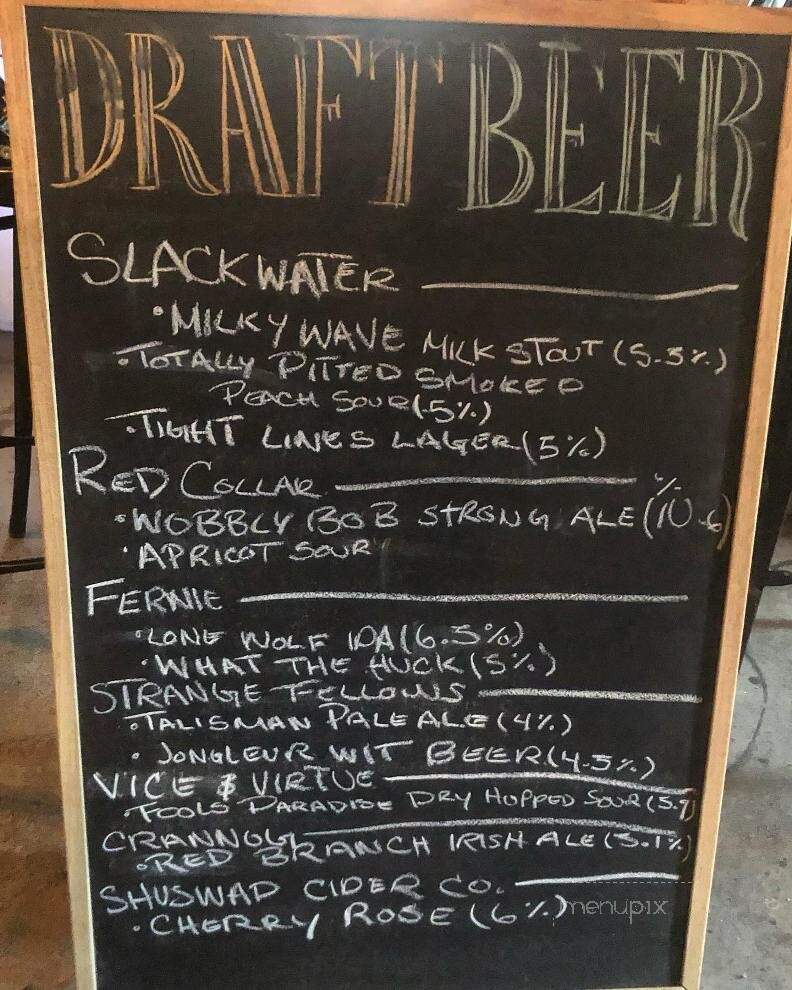 DRAFT BEER
SLACKWATER
• MILKY WAVE MILK STOUT (5.3%)
• TOTALLY PITTED SMOKED
PEACH SOUR (5%)
• TIGHT LINES LAGER (5%)
RED COLLAR
• WOBBLY BOB STRONG ALE (10.6%)
• APRICOT SOUR
FERNIE
• LONE WOLF IPA (6.5%)
• WHAT THE HUCK (5%)
STRANGE FELLOWS
• TALISMAN PALE ALE (4%)
• JONGLEUR WIT BEER (4.5%)
VICE & VIRTUE
• FOOLS PARADISE DRY HOPPED SOUR (5.9)
CRANNOG
• RED BRANCH IRISH ALE (5.1%)
SHUSWAP CIDER CO.
• CHERRY ROSE (6%)
menupix